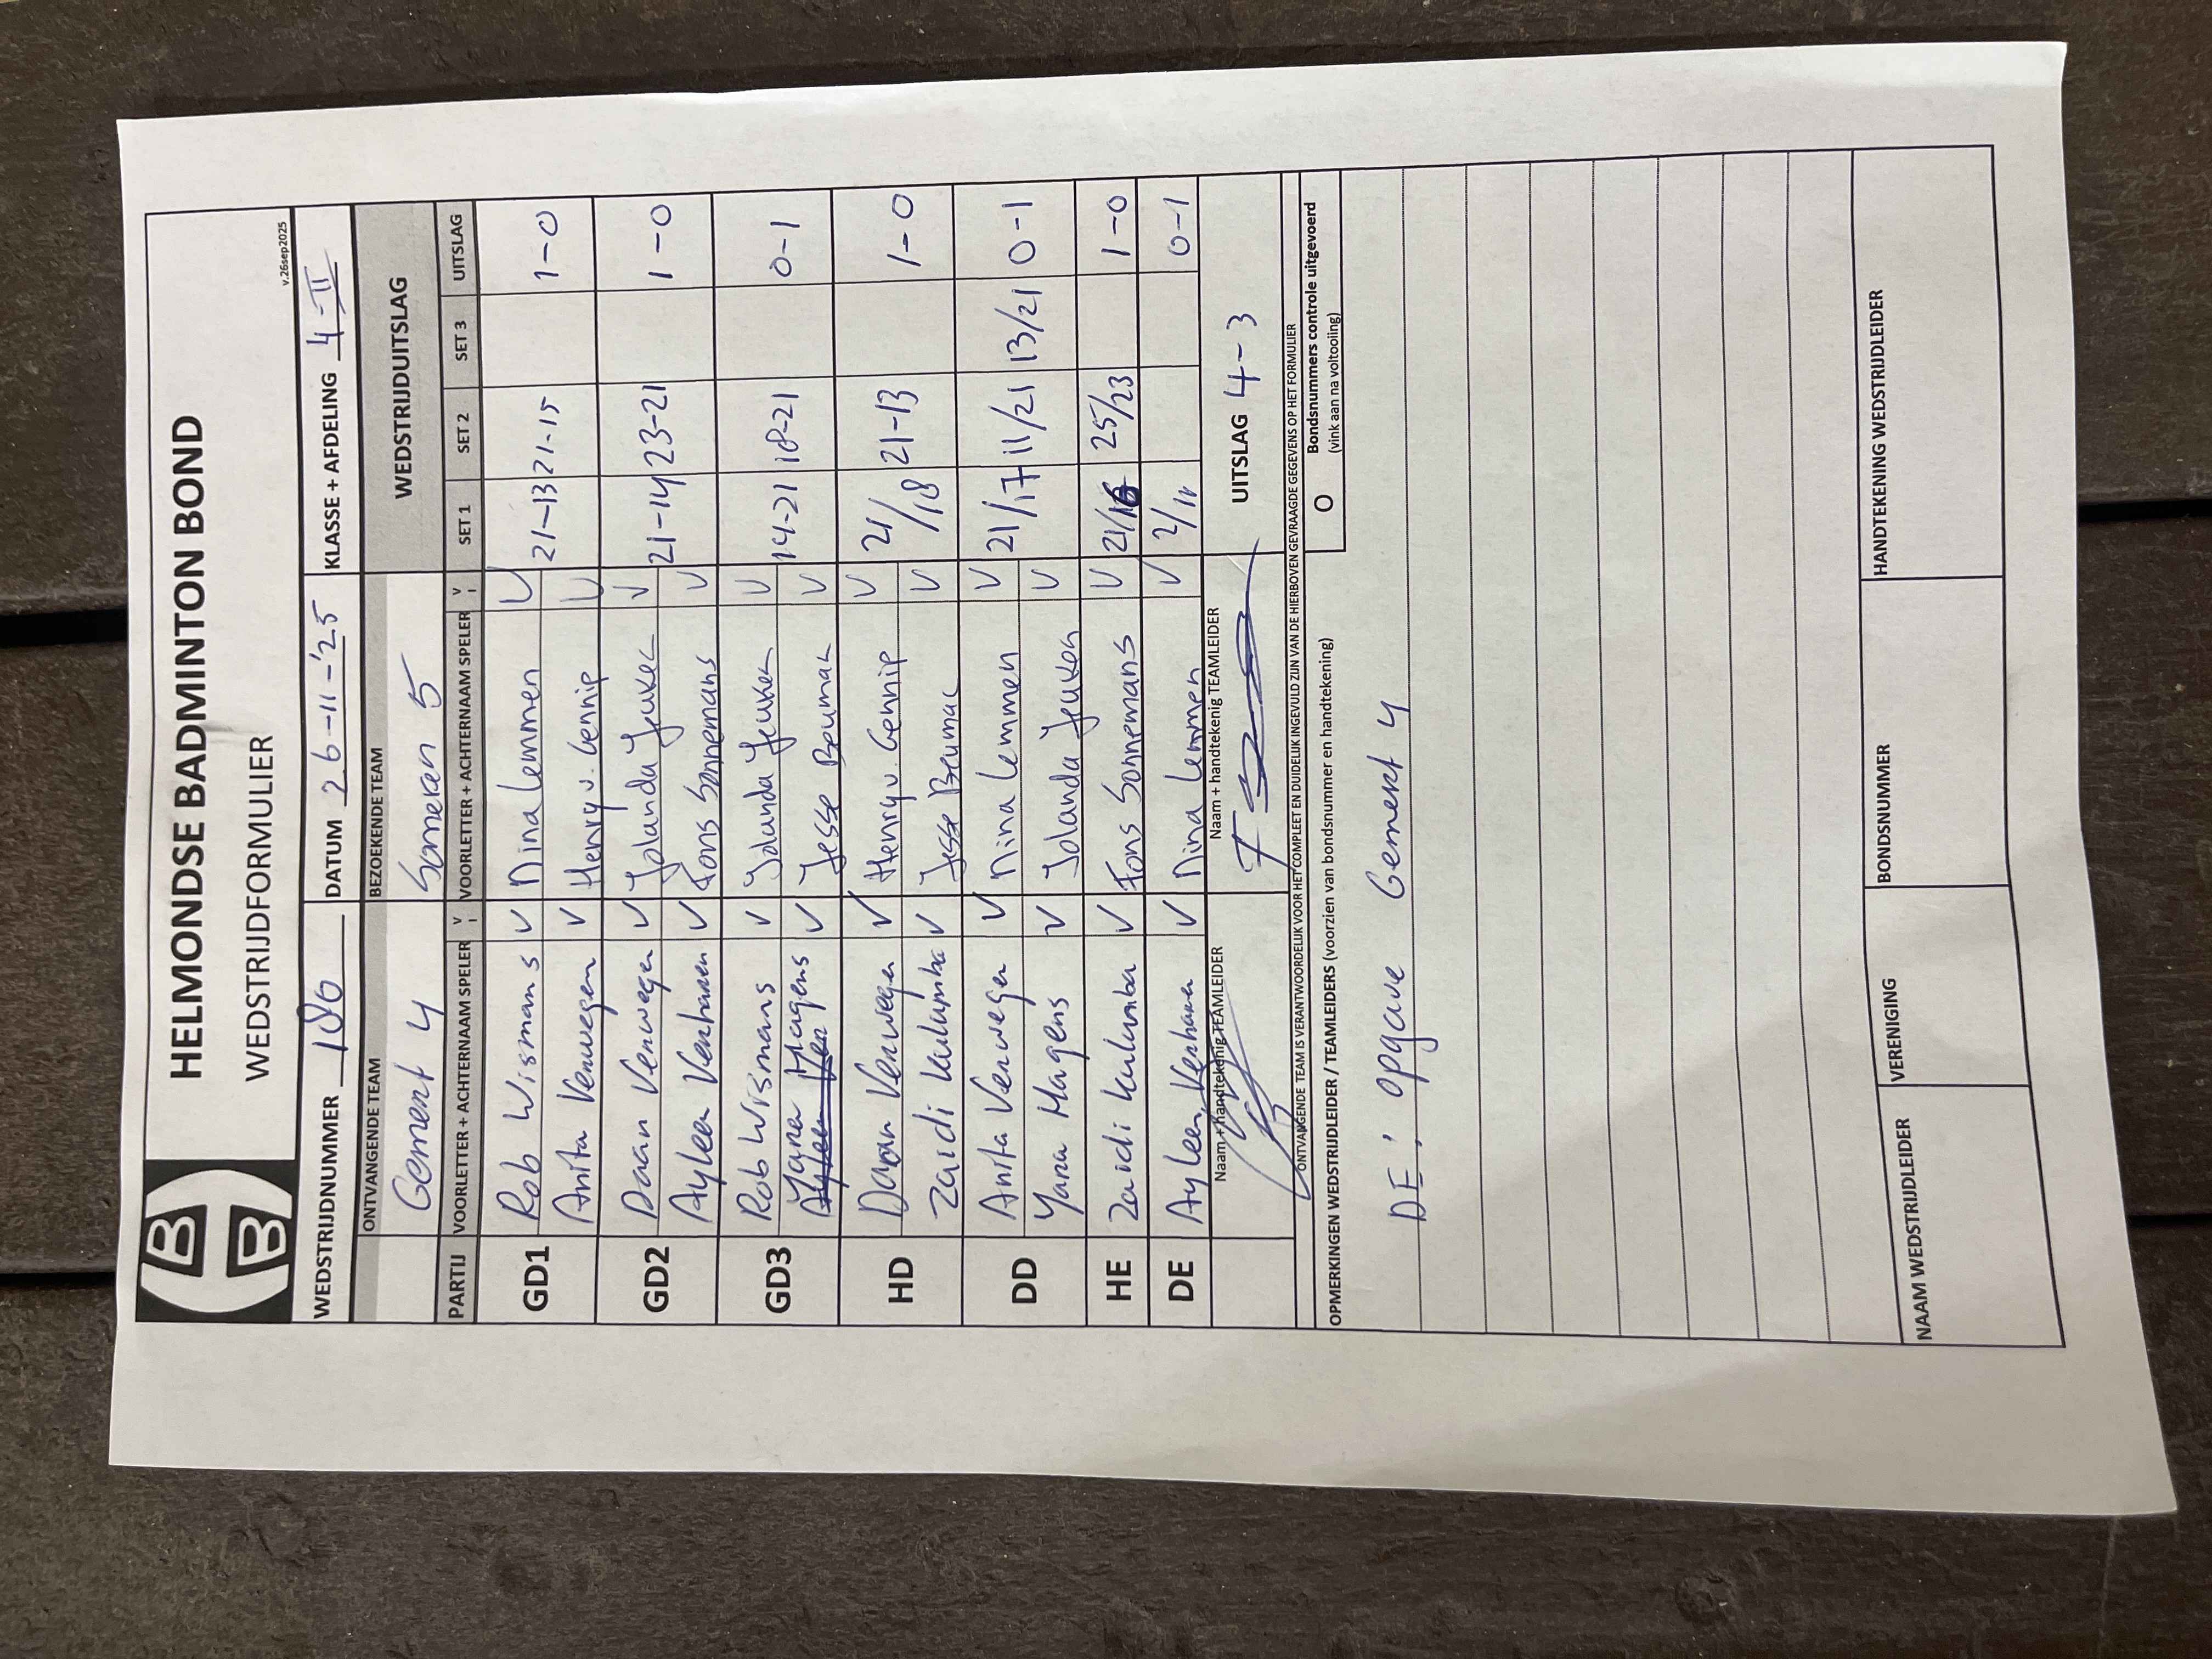 HELMONDSE BADMINTON BOND
WEDSTRIJDFORMULIER
v.26sep2025
WEDSTRIJDNUMMER 180 DATUM 26-11-'25 KLASSE + AFDELING 4-II
ONTVANGENDE TEAM BEZOEKENDE TEAM WEDSTRIJDUITSLAG
Gemert 4 Someren 5
PARTIJ VOORLETTER + ACHTERNAAM SPELER V VOORLETTER + ACHTERNAAM SPELER V SET 1 SET 2 SET 3 UITSLAG
GD1 Rob Wismans V Nina Lemmen V 21-13 21-15 1-0
Anita Verwegen V Henry v. Gennip V
GD2 Daan Verwegen V Jolanda Jeuken V 21-14 23-21 1-0
Ayleen Verhoeven V Fons Sonnemans V
GD3 Rob Wismans V Jolanda Jeuken V 14-21 18-21 0-1
Yana Hagens V Jesse Beumar V
HD Daan Verwegen V Henry v. Gennip V 21/18 21-13 1-0
Zaidi Kulumba V Jesse V
DD Anita Verwegen V Nina Lemmen V 21/17 11/21 13/21 0-1
Yana Hagens V Jolanda Jeuken V
HE Zaidi Kulumba V Fons Sonnemans V 21/16 25/23 1-0
DE Ayleen V Nina Lemmen V 2/11 0-1
Naam + handtekenig TEAMLEIDER Naam + handtekenig TEAMLEIDER UITSLAG 4-3
ONTVANGENDE TEAM IS VERANTWOORDELIJK VOOR HET COMPLEET EN DUIDELIJK INGEVULD ZIJN VAN DE HIERBOVEN GEVRAAGDE GEGEVENS OP HET FORMULIER
OPMERKINGEN WEDSTRIJDLEIDER / TEAMLEIDERS (voorzien van bondsnummer en handtekening) O Bondsnummers controle uitgevoerd
(vink aan na voltooiing)
DE: opgave Gemert 4
NAAM WEDSTRIJDLEIDER VERENIGING BONDSNUMMER HANDTEKENING WEDSTRIJDLEIDER